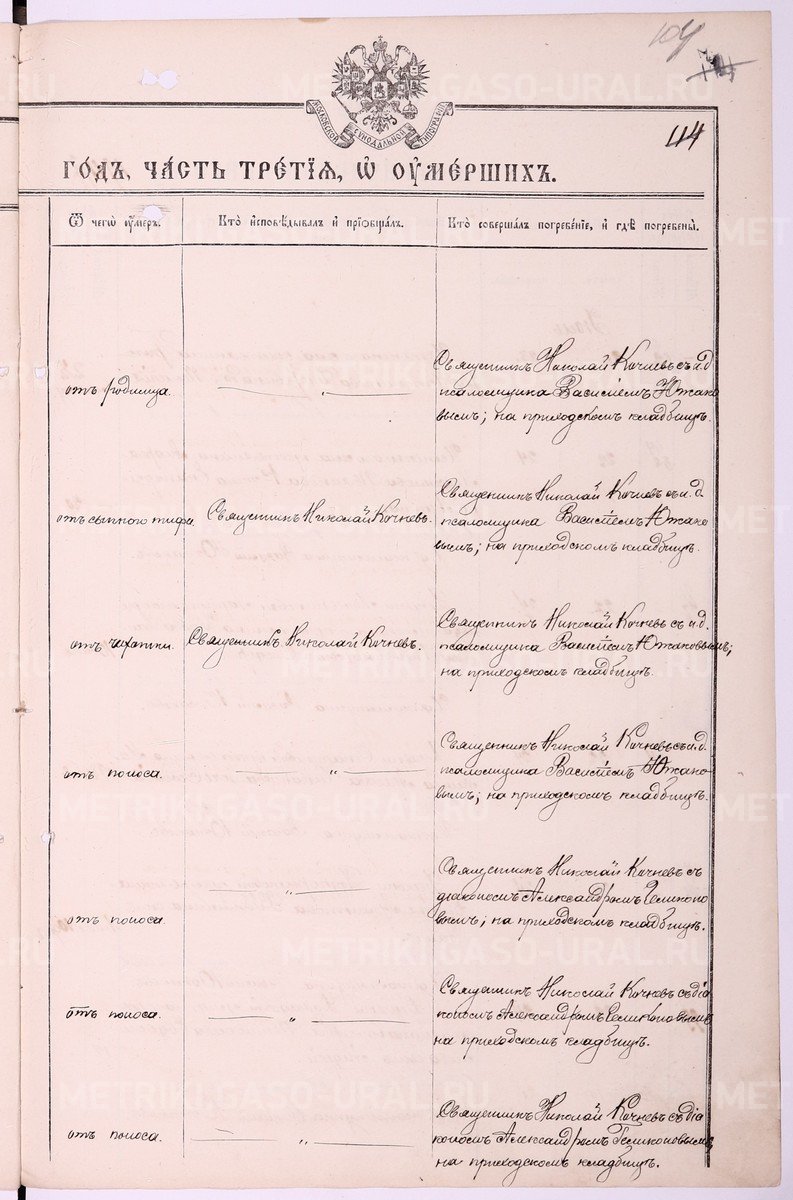 104
114
МОСКОВСКОЙ СѴНОДАЛЬНОЙ ТИПОГРАФІИ
ГОДЪ, ЧАСТЬ ТРЕТІЯ, Ѡ ОУМЕРШИХЪ.
Ѿ чегѡ оумеръ.
Кто исповѣдывалъ и пріобщалъ.
Кто совершалъ погребеніе, и гдѣ погребены.
отъ родимца.
— „ —
Священникъ Николай Кочневъ съ и.д.
псаломщика Василіемъ Южако
вымъ; на приходскомъ кладбищѣ.
отъ сыпного тифа.
Священникъ Николай Кочневъ.
Священникъ Николай Кочневъ съ и.д.
псаломщика Василіемъ Южако
вымъ; на приходскомъ кладбищѣ.
отъ чахотки.
Священникъ Николай Кочневъ.
Священникъ Николай Кочневъ съ и.д.
псаломщика Василіемъ Южаковымъ;
на приходскомъ кладбищѣ.
отъ поноса.
— „ —
Священникъ Николай Кочневъ съ и.д.
псаломщика Василіемъ Южако
вымъ; на приходскомъ кладбищѣ.
отъ поноса.
— „ —
Священникъ Николай Кочневъ съ
діакономъ Александромъ
вымъ; на приходскомъ кладбищѣ.
отъ поноса.
— „ —
Священникъ Николай Кочневъ съ діа
кономъ Александромъ
на приходскомъ кладбищѣ.
отъ поноса.
— „ —
Священникъ Николай Кочневъ съ діа
кономъ Александромъ
на приходскомъ кладбищѣ.
METRIKI.GASO-URAL.RU